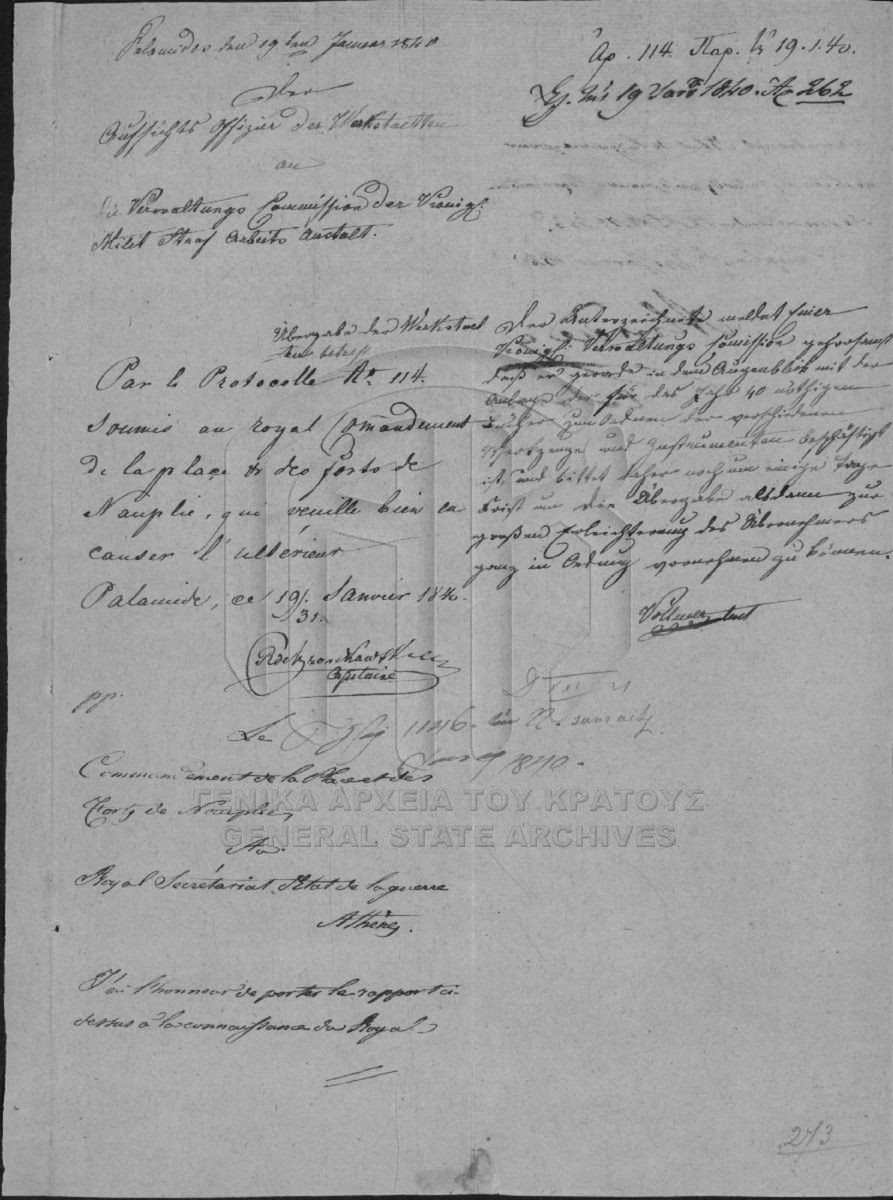 Palamides den 19ten Januar 1840
Αρ. 114. Παρ. 19.1.40.
19 1840. № 262
Der
Aufsichts Offizier der Werkstaetten
an
die Verwaltungs Commission der Königl.
Milit Straf Arbeits Anstalt.
Übergabe der Werkstaet
ten betreff
Der Unterzeichnete meldet einer
Königl. Verwaltungs Comission gehorsamst
daß er gerade in dem Augenblik mit der
Anlage der für das Jahr 40 nöthigen
Bücher zum Ordnen der verschiedenen
Werkzeuge und Instrumenten beschäftigt
ist, und bittet daher noch um einige Tage
Frist um die Übergabe alsdann zur
großen Erleichterung des Übernehmers
ganz in Ordnung vornehmen zu können.
Vollmer
Par le Protocolle No. 114.
soumis au royal Commandement
de la place & des forts de
Nauplie, que veuille bien en
causer l'ultérieur
Palamide, ce 19/31. Janvier 1840.
Capitaine
pp.
Le
1840.
Commandement de la Place et des
Forts de Nauplie
Au
Royal Secrétariat d'Etat de la guerre
Athènes.
J'ai l'honneur de porter le rapport ci
dessus à la connaissance du Royal
ΓΕΝΙΚΑ ΑΡΧΕΙΑ ΤΟΥ ΚΡΑΤΟΥΣ
GENERAL STATE ARCHIVES
273